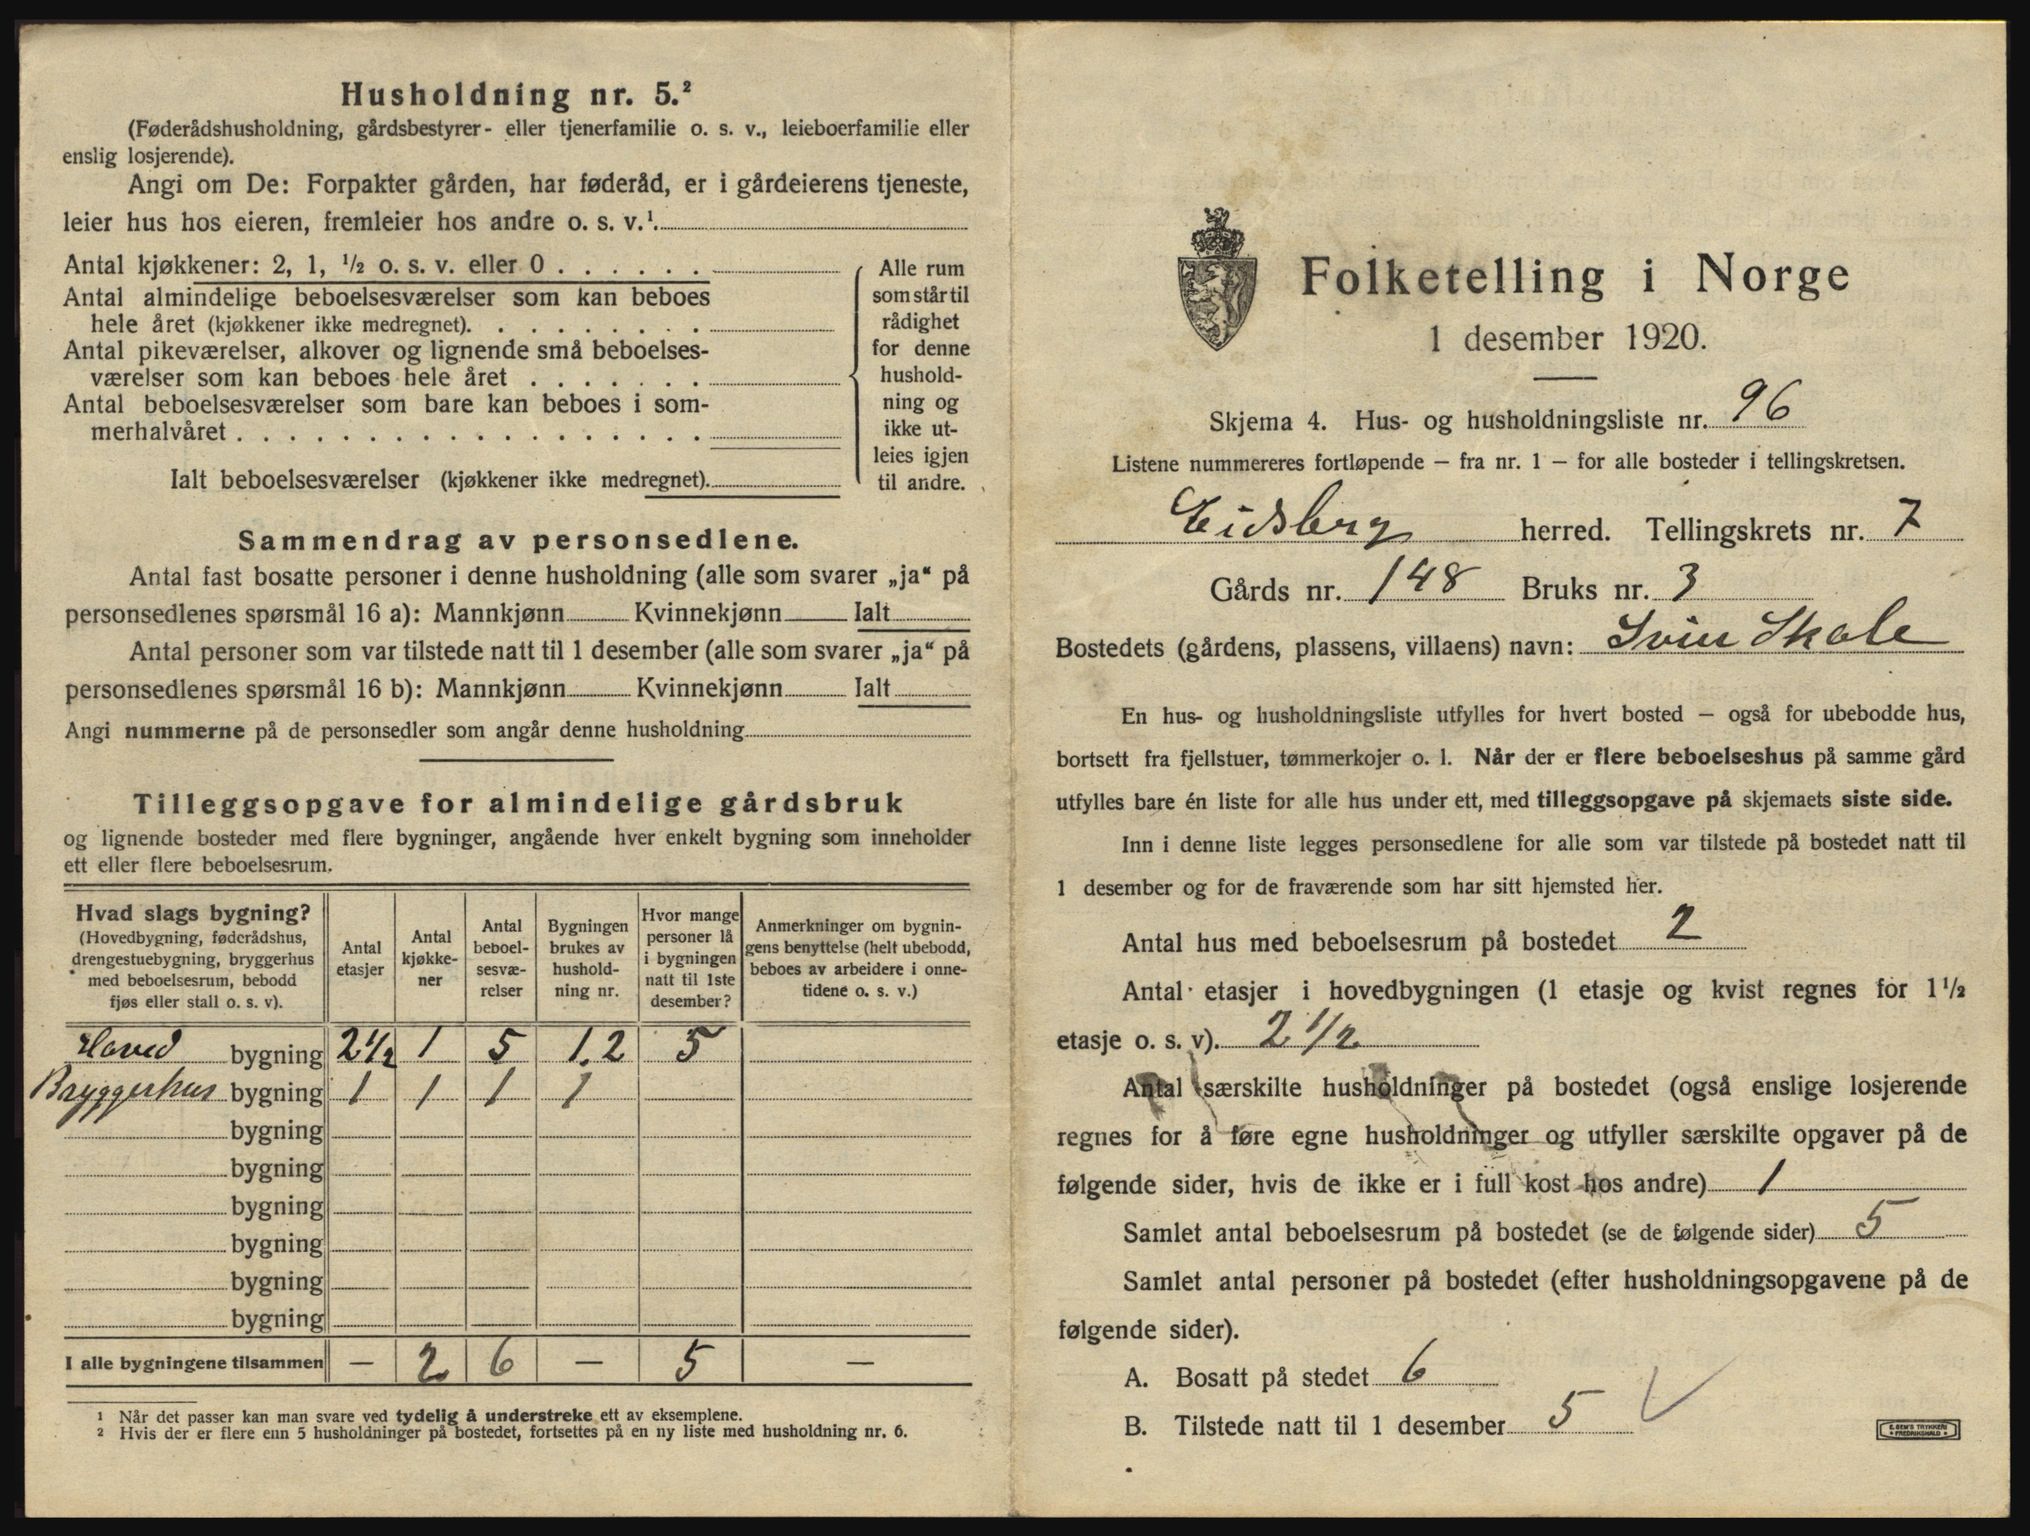 Husholdning nr. 5.²
(Føderådshusholdning, gårdsbestyrer- eller tjenerfamilie o. s. v., leieboerfamilie eller
enslig losjerende).
Angi om De: Forpakter gården, har føderåd, er i gårdeierens tjeneste,
leier hus hos eieren, fremleier hos andre o. s. v.¹.
Antal kjøkkener: 2, 1, ½ o. s. v. eller 0 . . . . . .
Antal almindelige beboelsesværelser som kan beboes
hele året (kjøkkener ikke medregnet). . . . . . . . .
Antal pikeværelser, alkover og lignende små beboelses-
værelser som kan beboes hele året . . . . . . .
Antal beboelsesværelser som bare kan beboes i som-
merhalvåret . . . . . . . . . . . . . . . . . .
Ialt beboelsesværelser (kjøkkener ikke medregnet).
Alle rum
som står til
rådighet
for denne
hushold-
ning og
ikke ut-
leies igjen
til andre.
Sammendrag av personsedlene.
Antal fast bosatte personer i denne husholdning (alle som svarer „ja“ på
personsedlenes spørsmål 16 a): Mannkjønn Kvinnekjønn Ialt
Antal personer som var tilstede natt til 1 desember (alle som svarer „ja“ på
personsedlenes spørsmål 16 b): Mannkjønn Kvinnekjønn Ialt
Angi nummerne på de personsedler som angår denne husholdning
Tilleggsopgave for almindelige gårdsbruk
og lignende bosteder med flere bygninger, angående hver enkelt bygning som inneholder
ett eller flere beboelsesrum.
Hvad slags bygning?
(Hovedbygning, føderådshus,
drengestuebygning, bryggerhus
med beboelsesrum, bebodd
fjøs eller stall o. s. v).
Antal
etasjer
Antal
kjøkke-
ner
Antal
beboel-
sesvæ-
relser
Bygningen
brukes av
hushold-
ning nr.
Hvor mange
personer lå
i bygningen
natt til 1ste
desember?
Anmerkninger om bygnin-
gens benyttelse (helt ubebodd,
beboes av arbeidere i onne-
tidene o. s. v.)
Hoved bygning 2½ 1 5 1.2 5
Bryggerhus bygning 1 1 1 1
bygning
bygning
bygning
bygning
bygning
bygning
I alle bygningene tilsammen — 2 6 — 5 —
¹ Når det passer kan man svare ved tydelig å understreke ett av eksemplene.
² Hvis der er flere enn 5 husholdninger på bostedet, fortsettes på en ny liste med husholdning nr. 6.
Folketelling i Norge
1 desember 1920.
Skjema 4. Hus- og husholdningsliste nr. 96
Listene nummereres fortløpende — fra nr. 1 — for alle bosteder i tellingskretsen.
Eidsberg herred. Tellingskrets nr. 7
Gårds nr. 148 Bruks nr. 3
Bostedets (gårdens, plassens, villaens) navn:
En hus- og husholdningsliste utfylles for hvert bosted — også for ubebodde hus,
bortsett fra fjellstuer, tømmerkojer o. l. Når der er flere beboelseshus på samme gård
utfylles bare én liste for alle hus under ett, med tilleggsopgave på skjemaets siste side.
Inn i denne liste legges personsedlene for alle som var tilstede på bostedet natt til
1 desember og for de fraværende som har sitt hjemsted her.
Antal hus med beboelsesrum på bostedet 2
Antal etasjer i hovedbygningen (1 etasje og kvist regnes for 1½
etasje o. s. v). 2 1/2
Antal særskilte husholdninger på bostedet (også enslige losjerende
regnes for å føre egne husholdninger og utfyller særskilte opgaver på de
følgende sider, hvis de ikke er i full kost hos andre) 1
Samlet antal beboelsesrum på bostedet (se de følgende sider) 5
Samlet antal personer på bostedet (efter husholdningsopgavene på de
følgende sider).
A. Bosatt på stedet 6
B. Tilstede natt til 1 desember 5